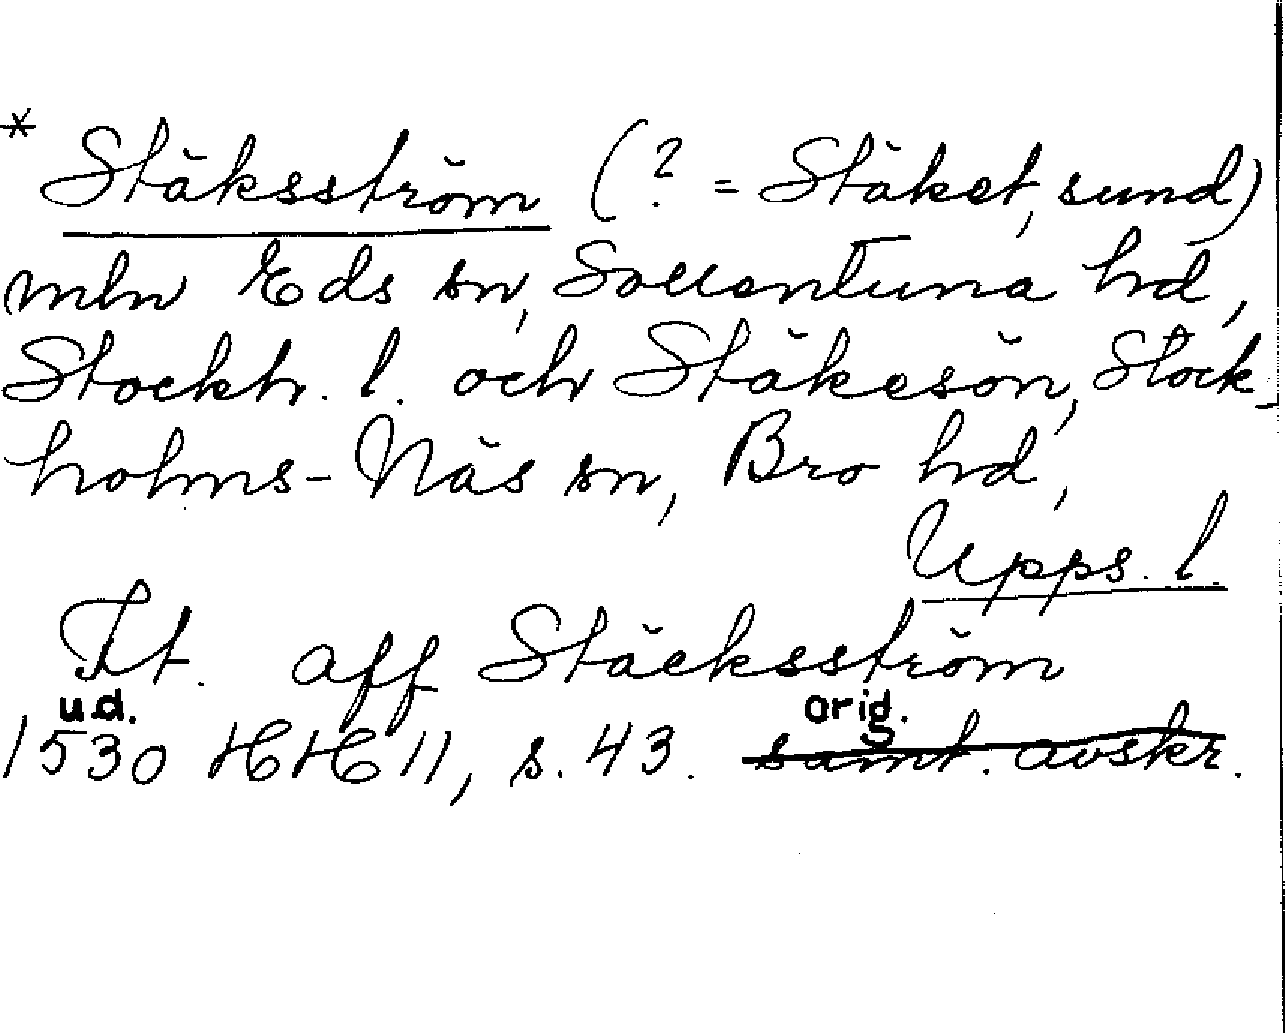 * Stäksström (? = Stäket, sund)
mln Eds sn, Sollentuna hd,
Stockh. l. och Stäkesön, Stock-
holms-Näs sn, Bro hd,
Upps. l.
It. aff Stäcksström
u.d. orig.
1530 HH 11, s. 43. samt. avskr.